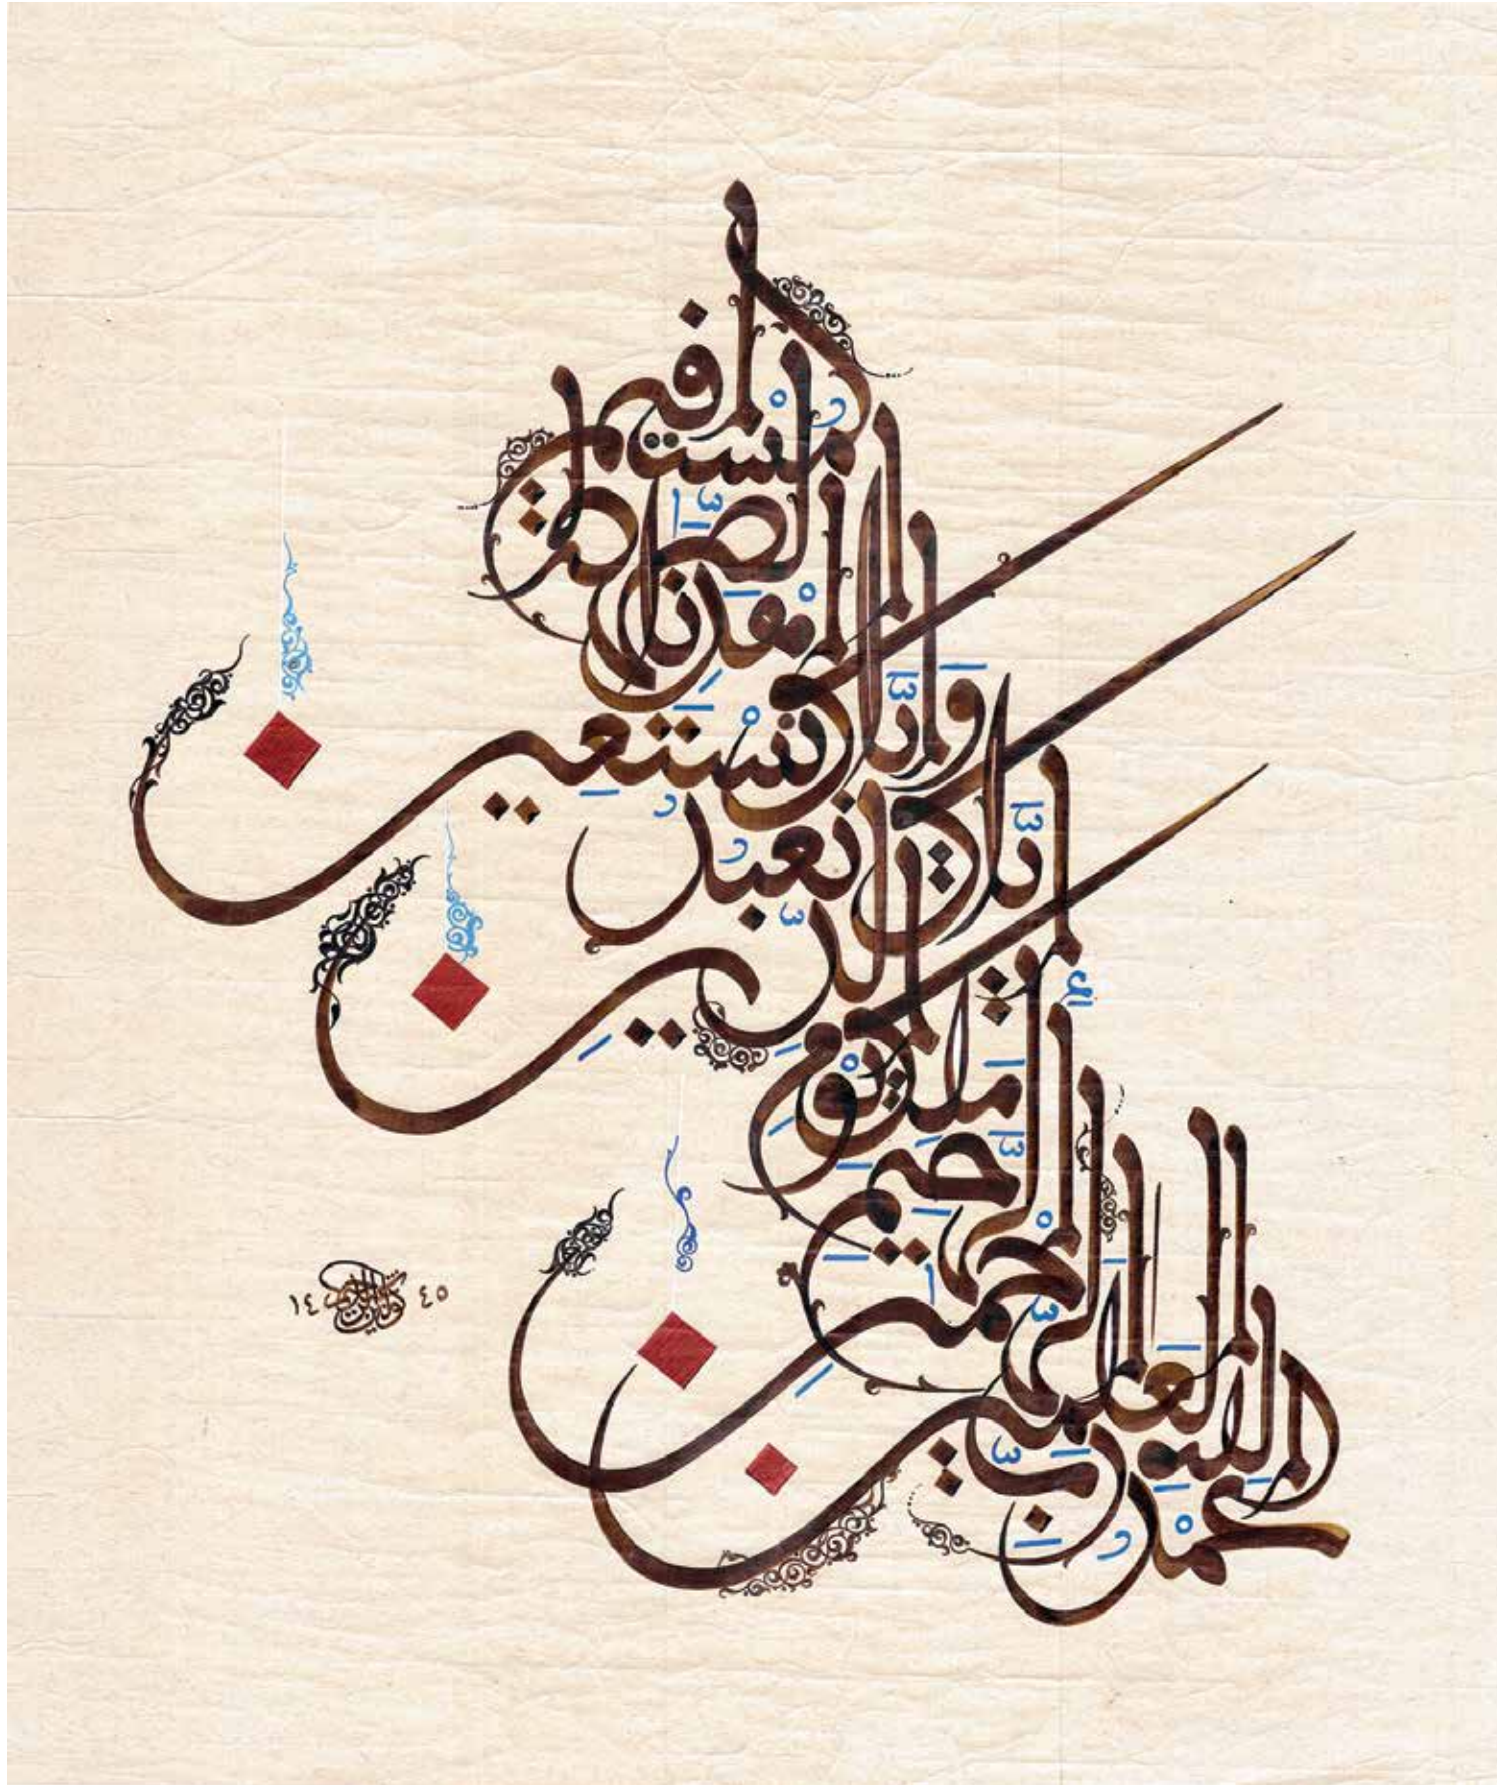 الْحَمْدُ لِلَّهِ رَبِّ الْعَالَمِينَ
الرَّحْمَنِ الرَّحِيمِ
مَالِكِ يَوْمِ الدِّينِ
إِيَّاكَ نَعْبُدُ
وَإِيَّاكَ نَسْتَعِينُ
اهْدِنَا الصِّرَاطَ الْمُسْتَقِيمَ
١٤٤٥